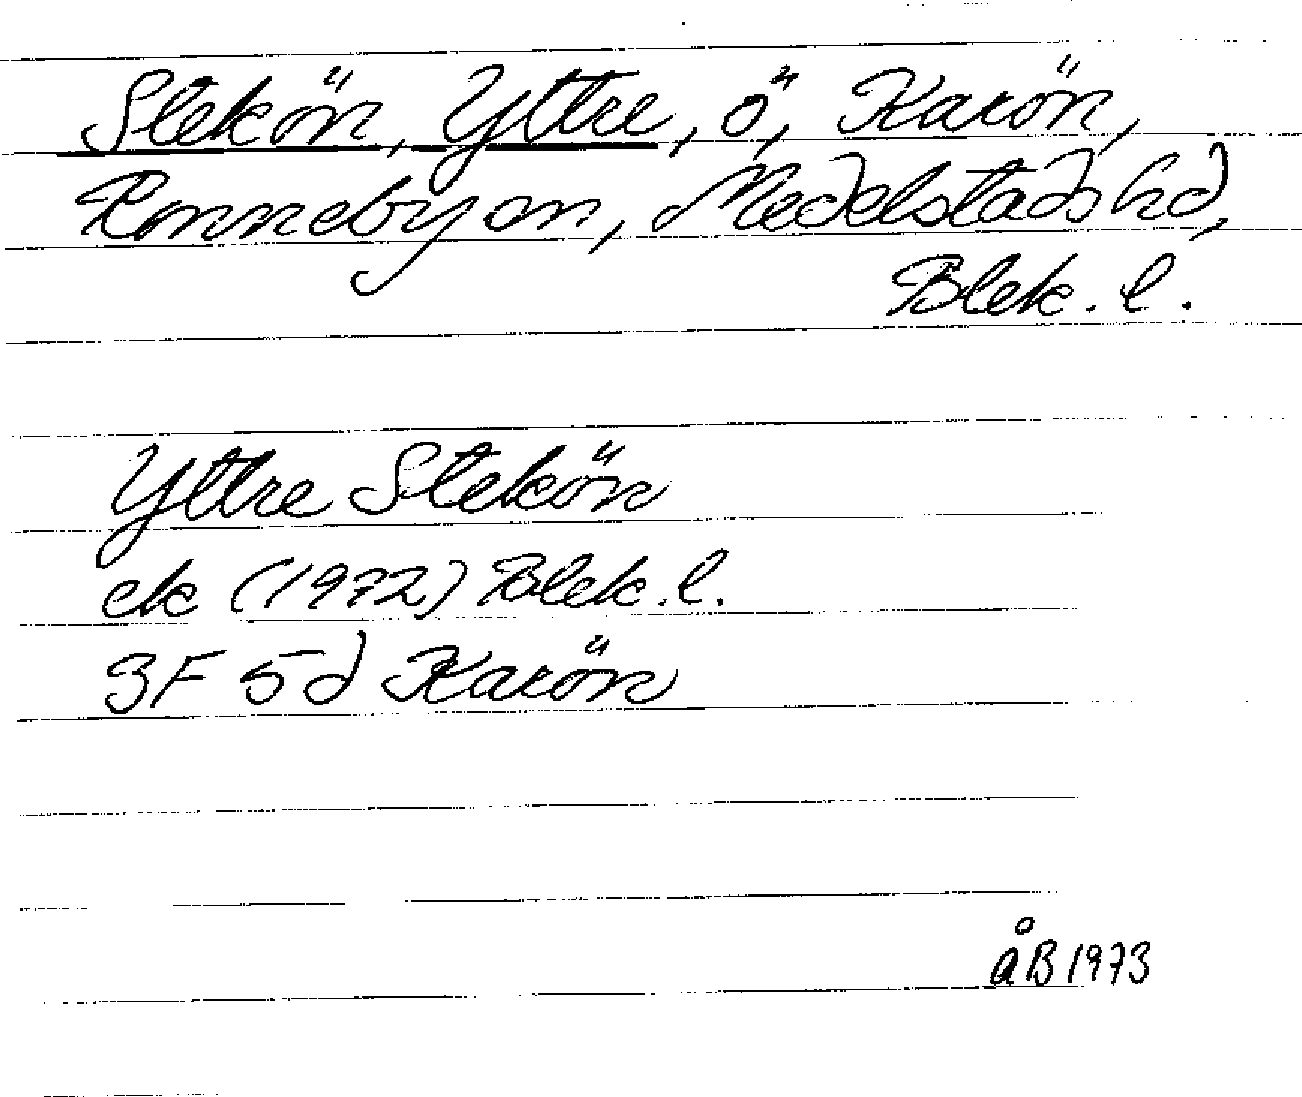 Stekön, Yttre, ö, Karön,
Ronnebyon, Medelstads hd,
Blek. l.
Yttre Stekön
ek (1972) Blek. l.
3F 5d Karön
åB 1973